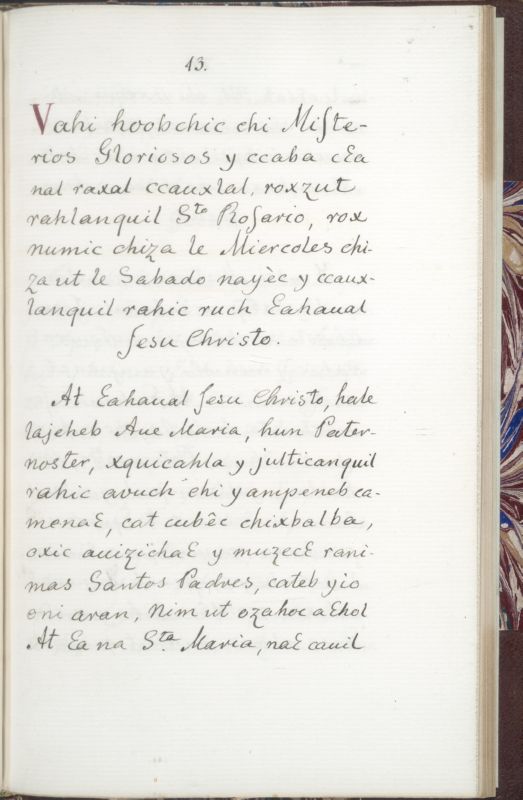 13.
Vahi hoobchic chi Miſte-
rios Gloriosos y ccaba cɛa
nal raxal ccauxlal, roxzut
rahlanquil S.to Roſario, rox
numic chiza le Miercoles chi-
za ut le Sabado nayèc y ccaux-
lanquil rahic ruch Eahaual
Jesu Christo.
At Eahaual Jesu Christo, hale
lajeheb Aue Maria, hun Pater-
noster, xquicahla y julticanquil
rahic auuch chi yampeneb ca-
menaɛ, cat cubêc chixbalba,
oxic auizichaɛ y muzecɛ rani-
mas Santos Padres, cateb yio
oni aran, Nim ut ozahoc aɛhol
At Ea na S.ta Maria, naɛ cauil